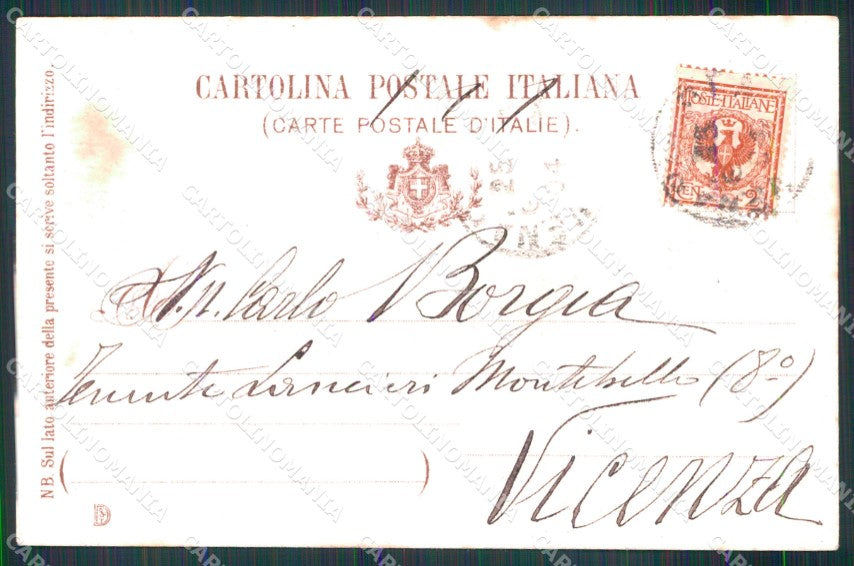 CARTOLINA POSTALE ITALIANA
(CARTE POSTALE D'ITALIE).
POSTE ITALIANE
CEN. 2
N. Carlo Borgia
Tenente Lancieri Montebello (8°)
Vicenza
NB. Sul lato anteriore della presente si scrive soltanto l'indirizzo.
CARTOLINOMANIA